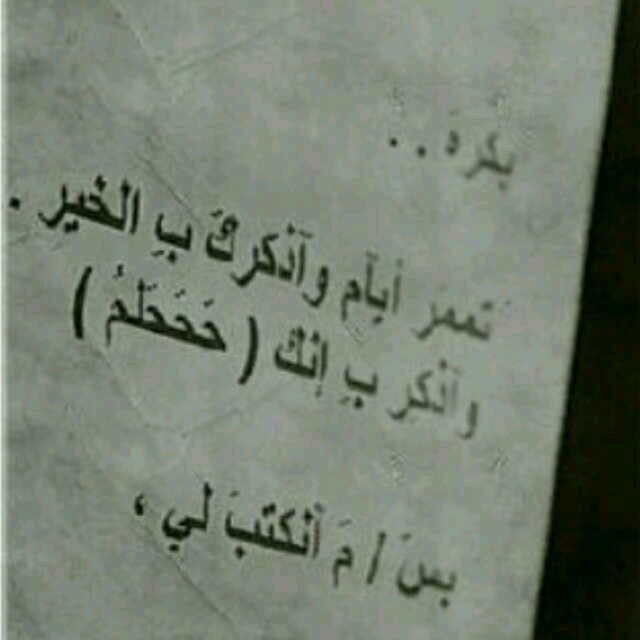 بكره ..
تممر أيآم وآذكركَ بِ الخير .
وآذكر بِ إنك ( حَححَلمُ )
بسَ / مَ آنكتبَ لي ،